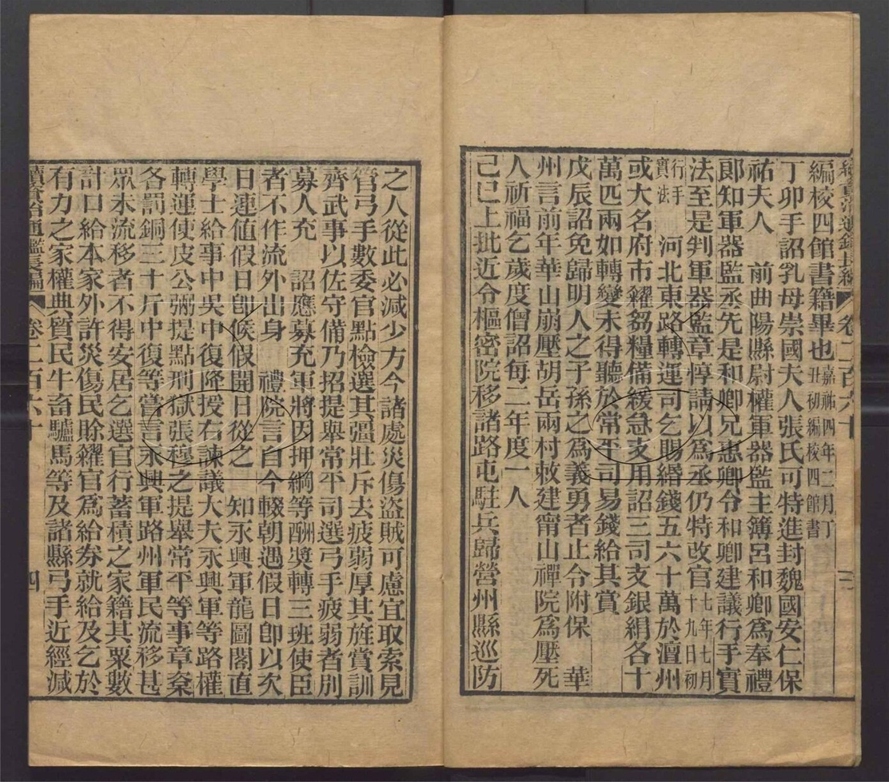 續資治通鑑長編 卷二百六十 三
編校四館書籍畢也嘉祐四年二月丁丑初編校四館書
丁卯手詔乳母崇國夫人張氏可特進封魏國安仁保
祐夫人 前曲陽縣尉權軍器監主簿呂和卿爲奉禮
郎知軍器監丞先是和卿兄惠卿令和卿建議行手實
法至是判軍器監章惇請以爲丞仍特改官七年七月十九日初
行手實法 河北東路轉運司乞賜緡錢五六十萬於澶州
或大名府市糴芻糧備緩急支用詔三司支銀絹各十
萬匹兩如轉變未得聽於常平司易錢給其賞
戊辰詔免歸明人之子孫之爲義勇者止令附保 華
州言前年華山崩壓胡岳兩村敕建甯山禪院爲壓死
人祈福乞歲度僧詔每二年度一人
己巳上批近令樞密院移諸路屯駐兵歸營州縣巡防
之人從此必減少方今諸處災傷盜賊可慮宜取索見
管弓手數委官點檢選其彊壯斥去疲弱厚其旌賞訓
齊武事以佐守備乃招提舉常平司選弓手疲弱者別
募人充 詔應募充軍將因押綱等酬獎轉三班使臣
者不作流外出身 禮院言自今輟朝遇假日卽以次
日連値假日卽候假開日從之 知永興軍龍圖閣直
學士給事中吳中復降授右諫議大夫永興軍等路權
轉運使皮公弼提點刑獄張穆之提舉常平等事章楶
各罰銅三十斤中復等嘗言永興軍路州軍民流移甚
眾未流移者不得安居乞選官行蓄積之家籍其粟數
計口給本家外許災傷民賒糴官爲給券就給及乞於
有力之家權典質民牛畜驢馬等及諸縣弓手近經減
續資治通鑑長編 卷二百六十 四